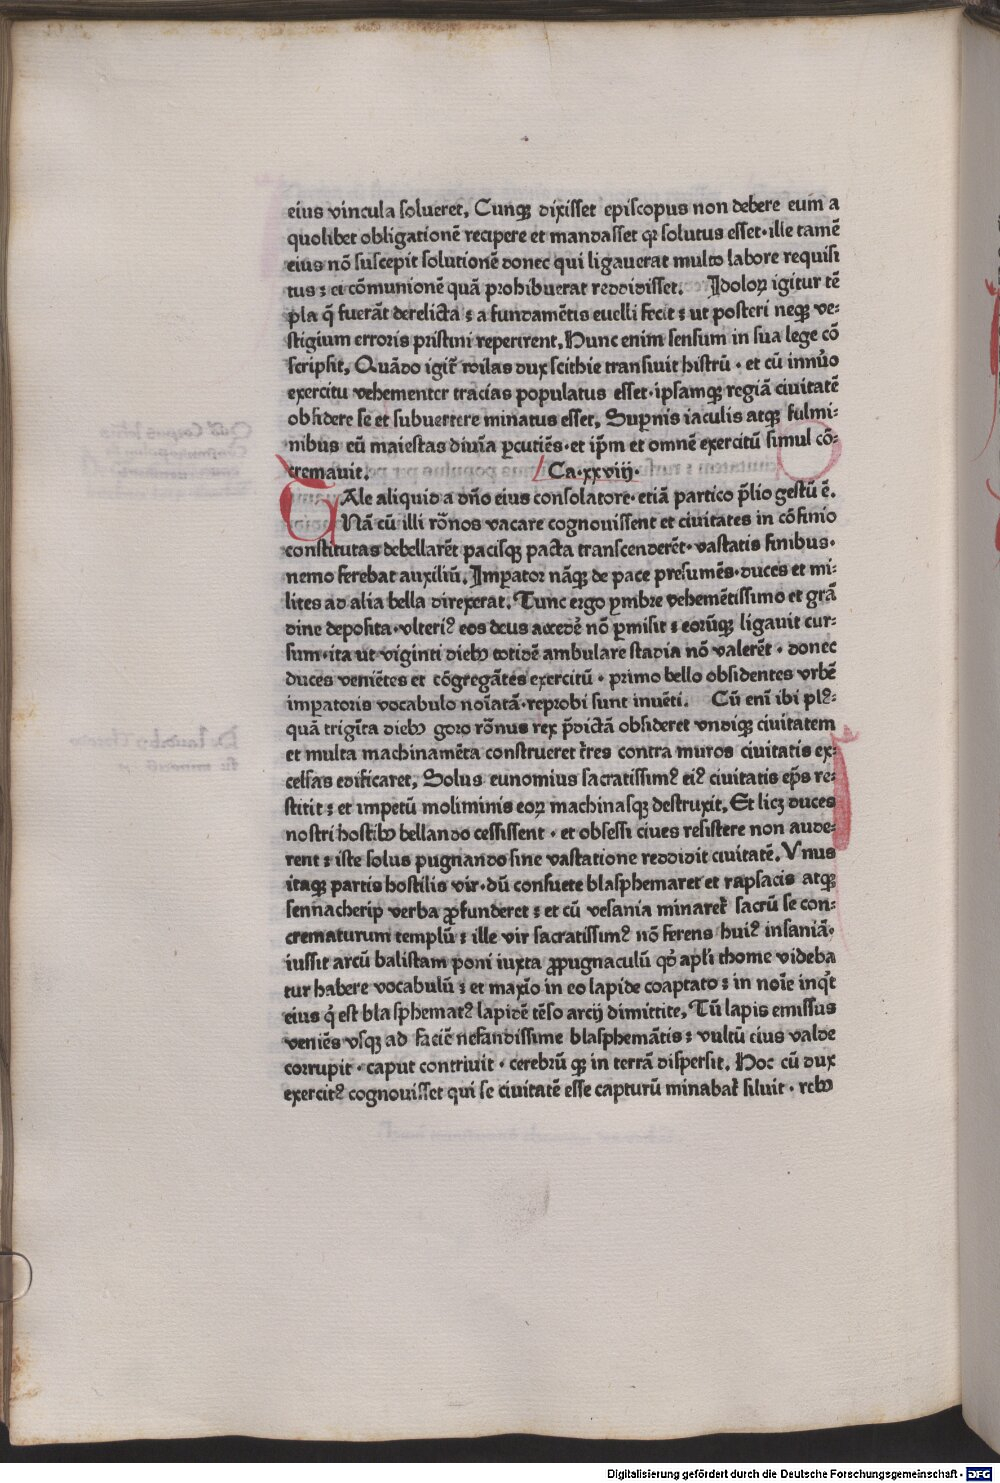 eius vincula solueret. Cunqꝫ dixisset episcopus non debere eum a
quolibet obligationē recipere et mandasset qꝛ solutus esset·ille tamē
eius nō suscepit solutionē donec qui ligauerat multo labore requisi
tus : ei cōmunionē quā prohibuerat reddidisset. Idoloꝝ igitur tē
pla q̄ fuerāt derelicta : a fundamētis euelli fecit : ut posteri neqꝫ ve:
stigium erroris pristini reperirent. Hunc enim sensum in sua lege cō
scripsit. Quādo igit̄ roilas dux scithie transiuit histrū · et cū innūo
exercitu vehementer tracias populatus esset·ipsamqꝫ regiā ciuitatē
obsidere se et subuertere minatus esset. Suꝑnis iaculis atqꝫ fulmi:
nibus eū maiestas diuīa ꝑcutiēs·et ip̄m et omnē exercitū simul cō:
cremauit. Ca·xxviij·
TAle aliquid a dn̄o eius consolatore·etiā partico p̄lio gestū ē.
Nā cū illi rōnos vacare cognouissent et ciuitates in cōfinio
constitutas debellarēt pacisqꝫ pacta transcenderēt·vastatis finibus·
nemo ferebat auxiliū. Imꝑator nāqꝫ de pace presumēs·duces et mi:
lites ad alia bella direxerat. Tunc ergo ꝑmbre vehemētissimo et grā
dine deposita·vlteriꝰ eos deus accedē nō ꝑmisit : eorūqꝫ ligauit cur:
sum·ita ut viginti dieb9 totidē ambulare stadia nō valerēt · donec
duces veniētes et cōgregātes exercitū · primo bello obsidentes vrbē
imꝑatoris vocabulo noīatā·reprobi sunt inuēti. Cū enī ibi plꝰ:
quā trigīta dieb9 goro rōnus rex p̄dictā obsideret vndiqꝫ ciuitatem
et multa machinamēta construeret t̄res contra muros ciuitatis ex:
celsas edificaret. Solus eunomius sacratissimꝰ eiꝰ ciuitatis ep̄s re:
stitit : et impetū moliminis eoꝝ machinasqꝫ destruxit. Et licꝫ duces
nostri hostib9 bellando cessissent · et obsessi ciues resistere non aude:
rent : iste solus pugnando sine vastatione reddidit ciuitatē. Vnus
itaqꝫ partis hostilis vir·dū consuete blasphemaret et rapsacis atqꝫ
sennacherip verba ꝓfunderet : et cū vesania minaret̄ sacrū se con:
crematurum templū : ille vir sacratissimꝰ nō ferens huiꝰ insaniā·
iussit arcū balistam poni iuxta ꝓpugnaculū qd̓ apl̄i thome videba
tur habere vocabulū : et maxīo in eo lapide coaptato : in noīe inqͥt
eius qͥ est blasphematꝰ lapidē tēso arcij dimittite. Tū lapis emissus
veniēs vsqꝫ ad faciē nefandissime blasphemātis : vultū eius valde
corrupit · caput contriuit · cerebrū qꝫ in terrā dispersit. Hoc cū dux
exercitꝰ cognouisset qui se ciuitatē esse capturū minabat̄ siluit · reb9
Digitalisierung gefördert durch die Deutsche Forschungsgemeinschaft · DFG